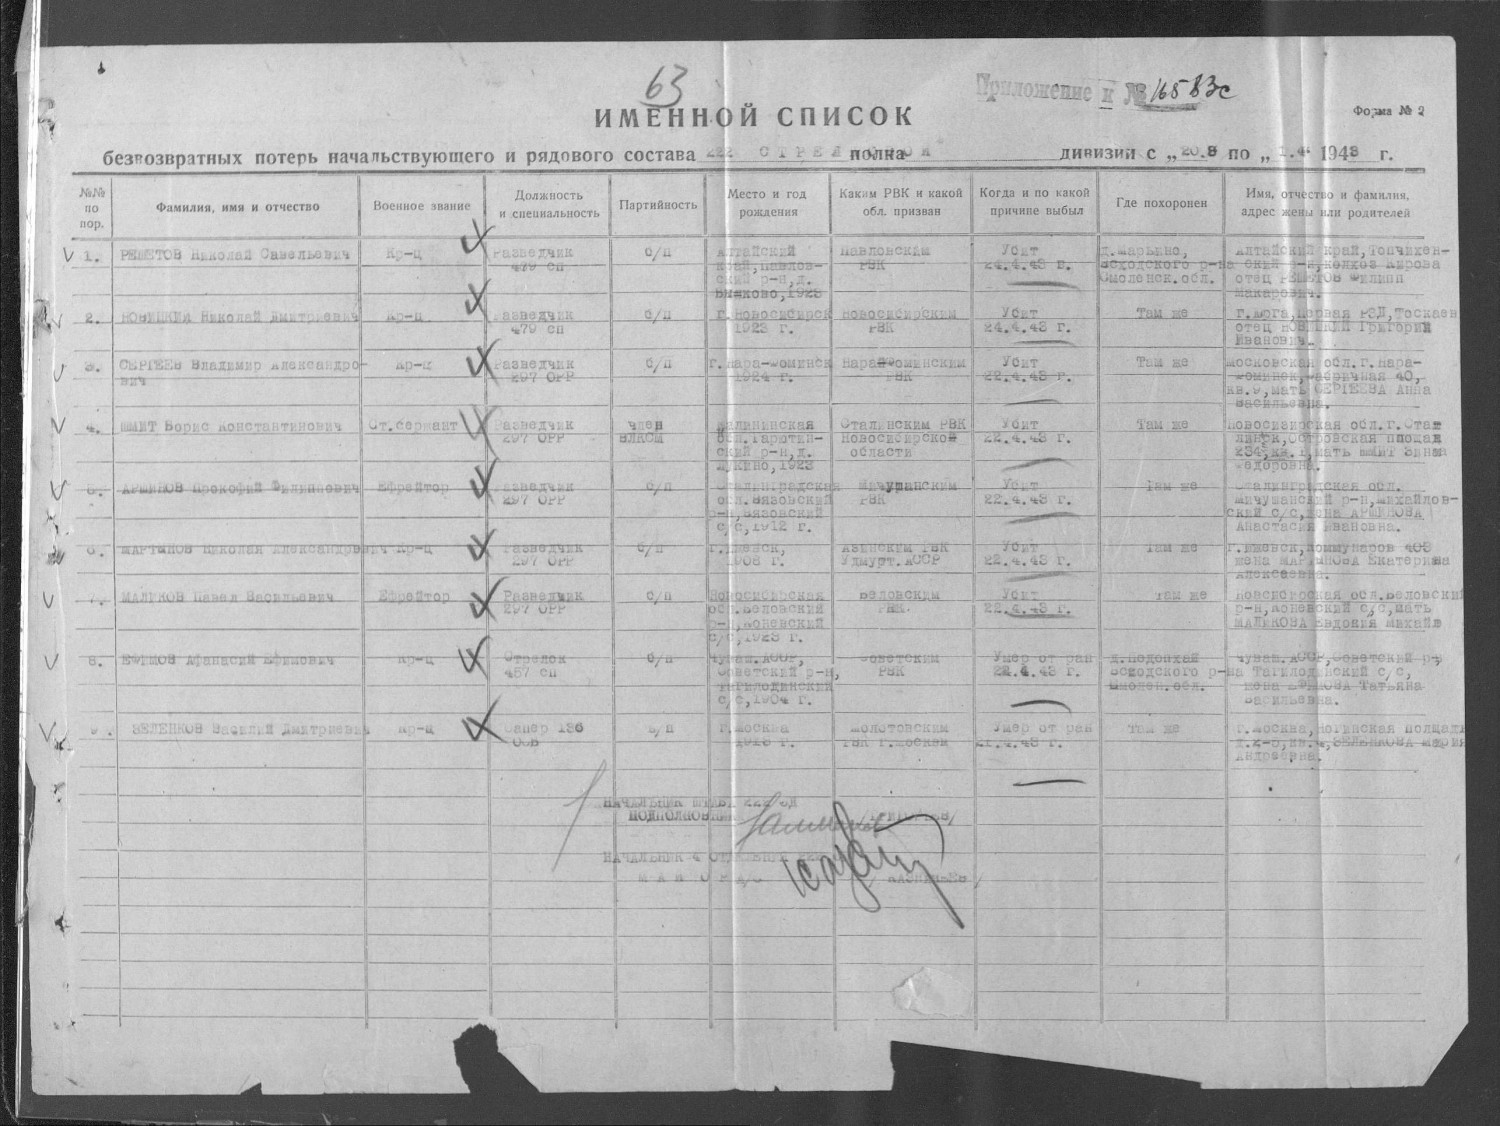 63
Приложение к № 16583с
ИМЕННОЙ СПИСОК
Форма № 2
безвозвратных потерь начальствующего и рядового состава 222 СТРЕЛКОВОЙ полка дивизии с „20.3 по „1.4. 1943 г.
№№ по пор.
Фамилия, имя и отчество
Военное звание
Должность и специальность
Партийность
Место и год рождения
Каким РВК и какой обл. призван
Когда и по какой причине выбыл
Где похоронен
Имя, отчество и фамилия, адрес жены или родителей
1. РЕШЕТОВ Николай Савельевич Кр-ц Разведчик б/п Алтайский Павловским Убит д.Марьино, Алтайский край,Топчихен-
479 сп край,Павлов- РВК 24.4.43 г. Всходского р-на ский р-н,колхоз Кирова
ский р-н,д. Смоленск.обл. отец РЕШЕТОВ Филипп
1923 Макарович.
2. НОВИЦКИЙ Николай Дмитриевич Кр-ц Разведчик б/п г.Новосибирск Новосибирским Убит Там же г.Юга,первая
479 сп 1923 г. РВК 24.4.43 г. отец НОВИЦКИЙ Григорий
Иванович.
3. СЕРГЕЕВ Владимир Александро- Кр-ц Разведчик б/п г.Нара-Фоминск Нара-Фоминским Убит Там же Московская обл.г.Нара-
вич 297 ОРР 1924 г. РВК 22.4.43 г. Фоминск,Фабричная 40,
кв.9,мать СЕРГЕЕВА Анна
Васильевна.
4. ШМИТ Борис Константинович Ст.сержант Разведчик член Калининская Сталинским РВК Убит Там же Новосибирская обл.г.Стал
297 ОРР ВЛКСМ обл. Новосибирской 22.4.43 г. линск,Островская площад
ский р-н,д. области 234,кв.1,мать ШМИТ Зинаа
1923 Федоровна.
5. АРШИНОВ Прокофий Филиппович Ефрейтор Разведчик б/п Сталинградская Мичуринским Убит Там же Сталинградская обл.
297 ОРР обл.Вязовский РВК 22.4.43 г. р-н,Михайлов-
р-н,Вязовский ский с/с,жена АРШИНОВА
с/с,1912 г. Анастасия Ивановна.
6. МАРТЫНОВ Николай Александрович Кр-ц Разведчик б/п г.Ижевск, Азинским РВК Убит Там же г.Ижевск,Коммунаров 403
297 ОРР 1908 г. Удмурт.АССР 22.4.43 г. жена МАРТЫНОВА Екатерина
Алексеевна.
7. МАЛИКОВ Павел Васильевич Ефрейтор Разведчик б/п Новосибирская Беловским Убит Там же Новосибирская обл.Беловский
297 ОРР обл.Беловский РВК 22.4.43 г. р-н,Коневский с/с,мать
р-н,Коневский МАЛИКОВА Евдокия Михайл
с/с,1923 г.
8. ЕФИМОВ Афанасий Ефимович Кр-ц Стрелок б/п Чуваш.АССР, Советским Умер от ран Чуваш.АССР,Советский р-
457 сп Советский р-н, РВК 22.4.43 г. Всходского р-на с/с,
Смолен.обл. жена ЕФИМОВА Татьяна
с/с,1904 г. Васильевна.
9. ЗЕЛЕНКОВ Василий Дмитриевич Кр-ц Сапер 136 б/п г.Москва Молотовским Умер от ран Там же г.Москва,
ОСБ РВК г.Москвы 21.4.43 г. ЗЕЛЕНКОВА Мария
Андреевна.
НАЧАЛЬНИК ШТАБА 222 СД
ПОДПОЛКОВНИК
НАЧАЛЬНИК 4 ОТДЕЛЕНИЯ
МАЙОР